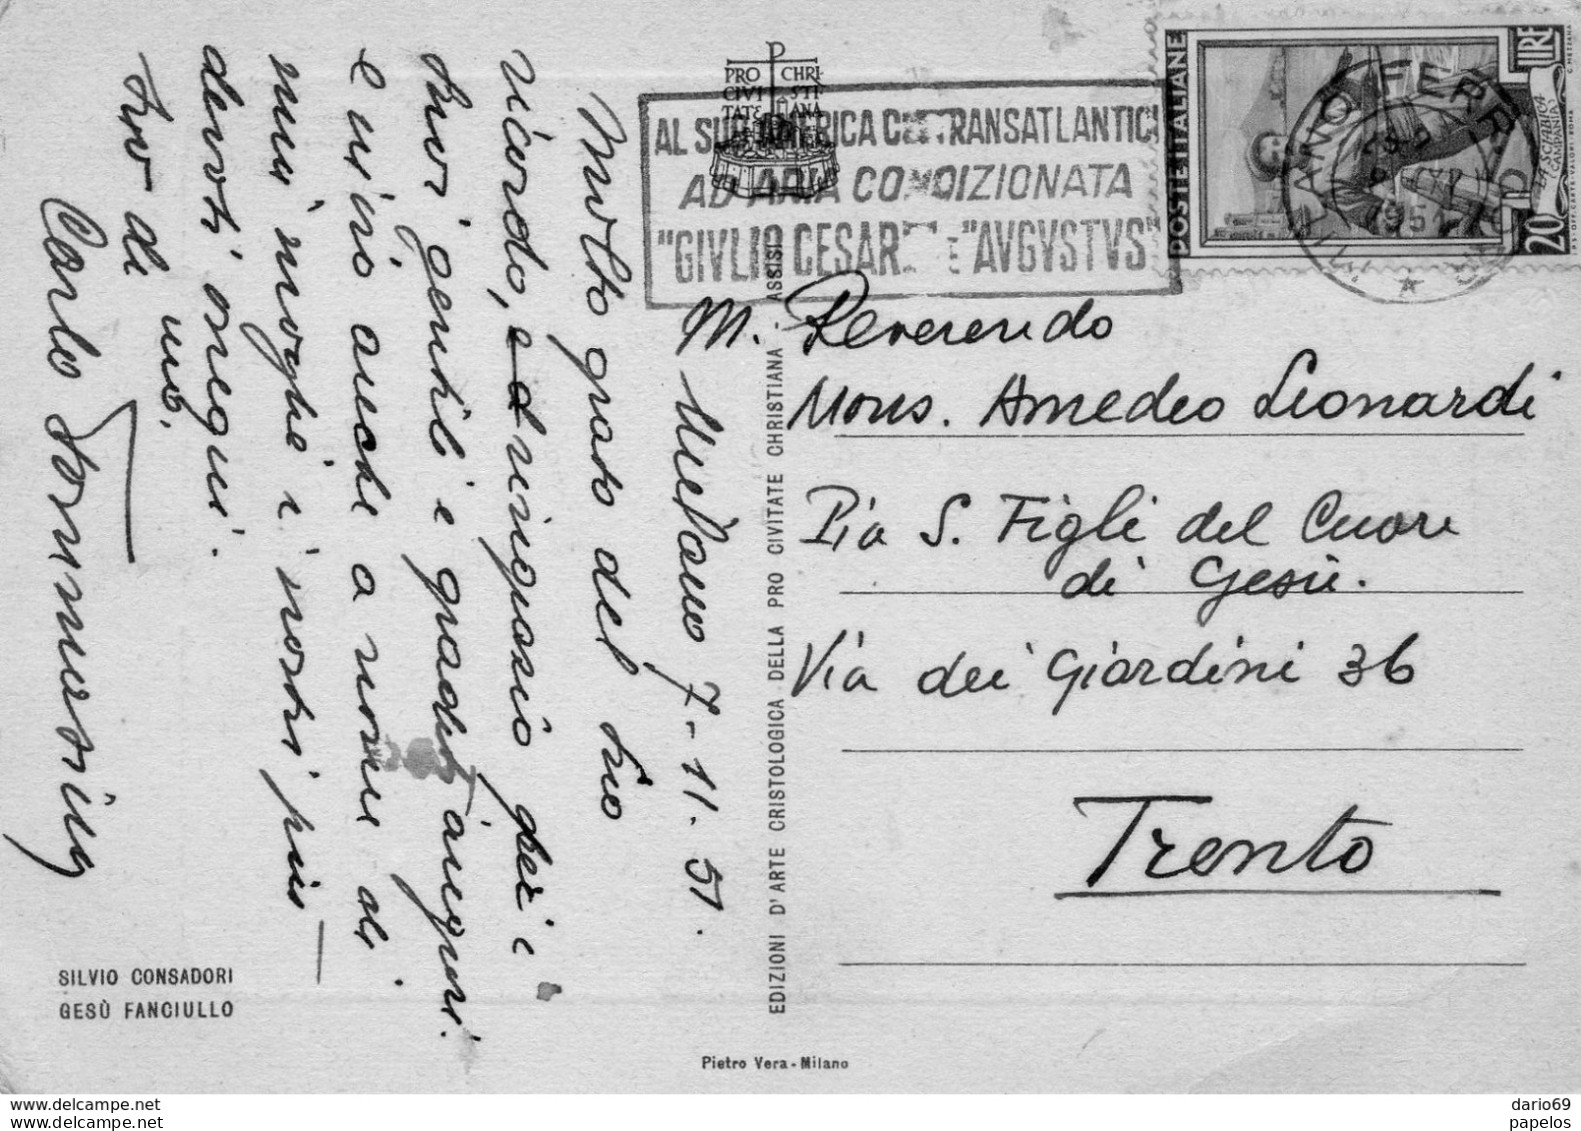 Milano 7-11.51.
Molto grato del Suo
ricordo, e ringrazio per i
Suoi gentili e graditi auguri.
anche a nome di
mia moglie i nostri più
devoti ossequi.
Suo di
Carlo
SILVIO CONSADORI
GESÙ FANCIULLO
PRO CHRI-
CIVI STI-
TATE ANA
EDIZIONI D'ARTE CRISTOLOGICA DELLA PRO CIVITATE CHRISTIANA - ASSISI
Pietro Vera - Milano
AL SUD AMERICA CON TRANSATLANTICI
AD ARIA CONDIZIONATA
"GIVLIO CESARE" E "AVGVSTVS"
POSTE ITALIANE
LIRE
20
LA SCIABICA
CAMPANIA
I.P.S. OFF. CARTE-VALORI-ROMA
C. MEZZANA
MILANO FERR.
1951
M. Reverendo
Mons. Amedeo Leonardi
Pia S. Figli del Cuore
di Gesù.
Via dei Giardini 36
Trento
dario69
papelos
www.delcampe.net